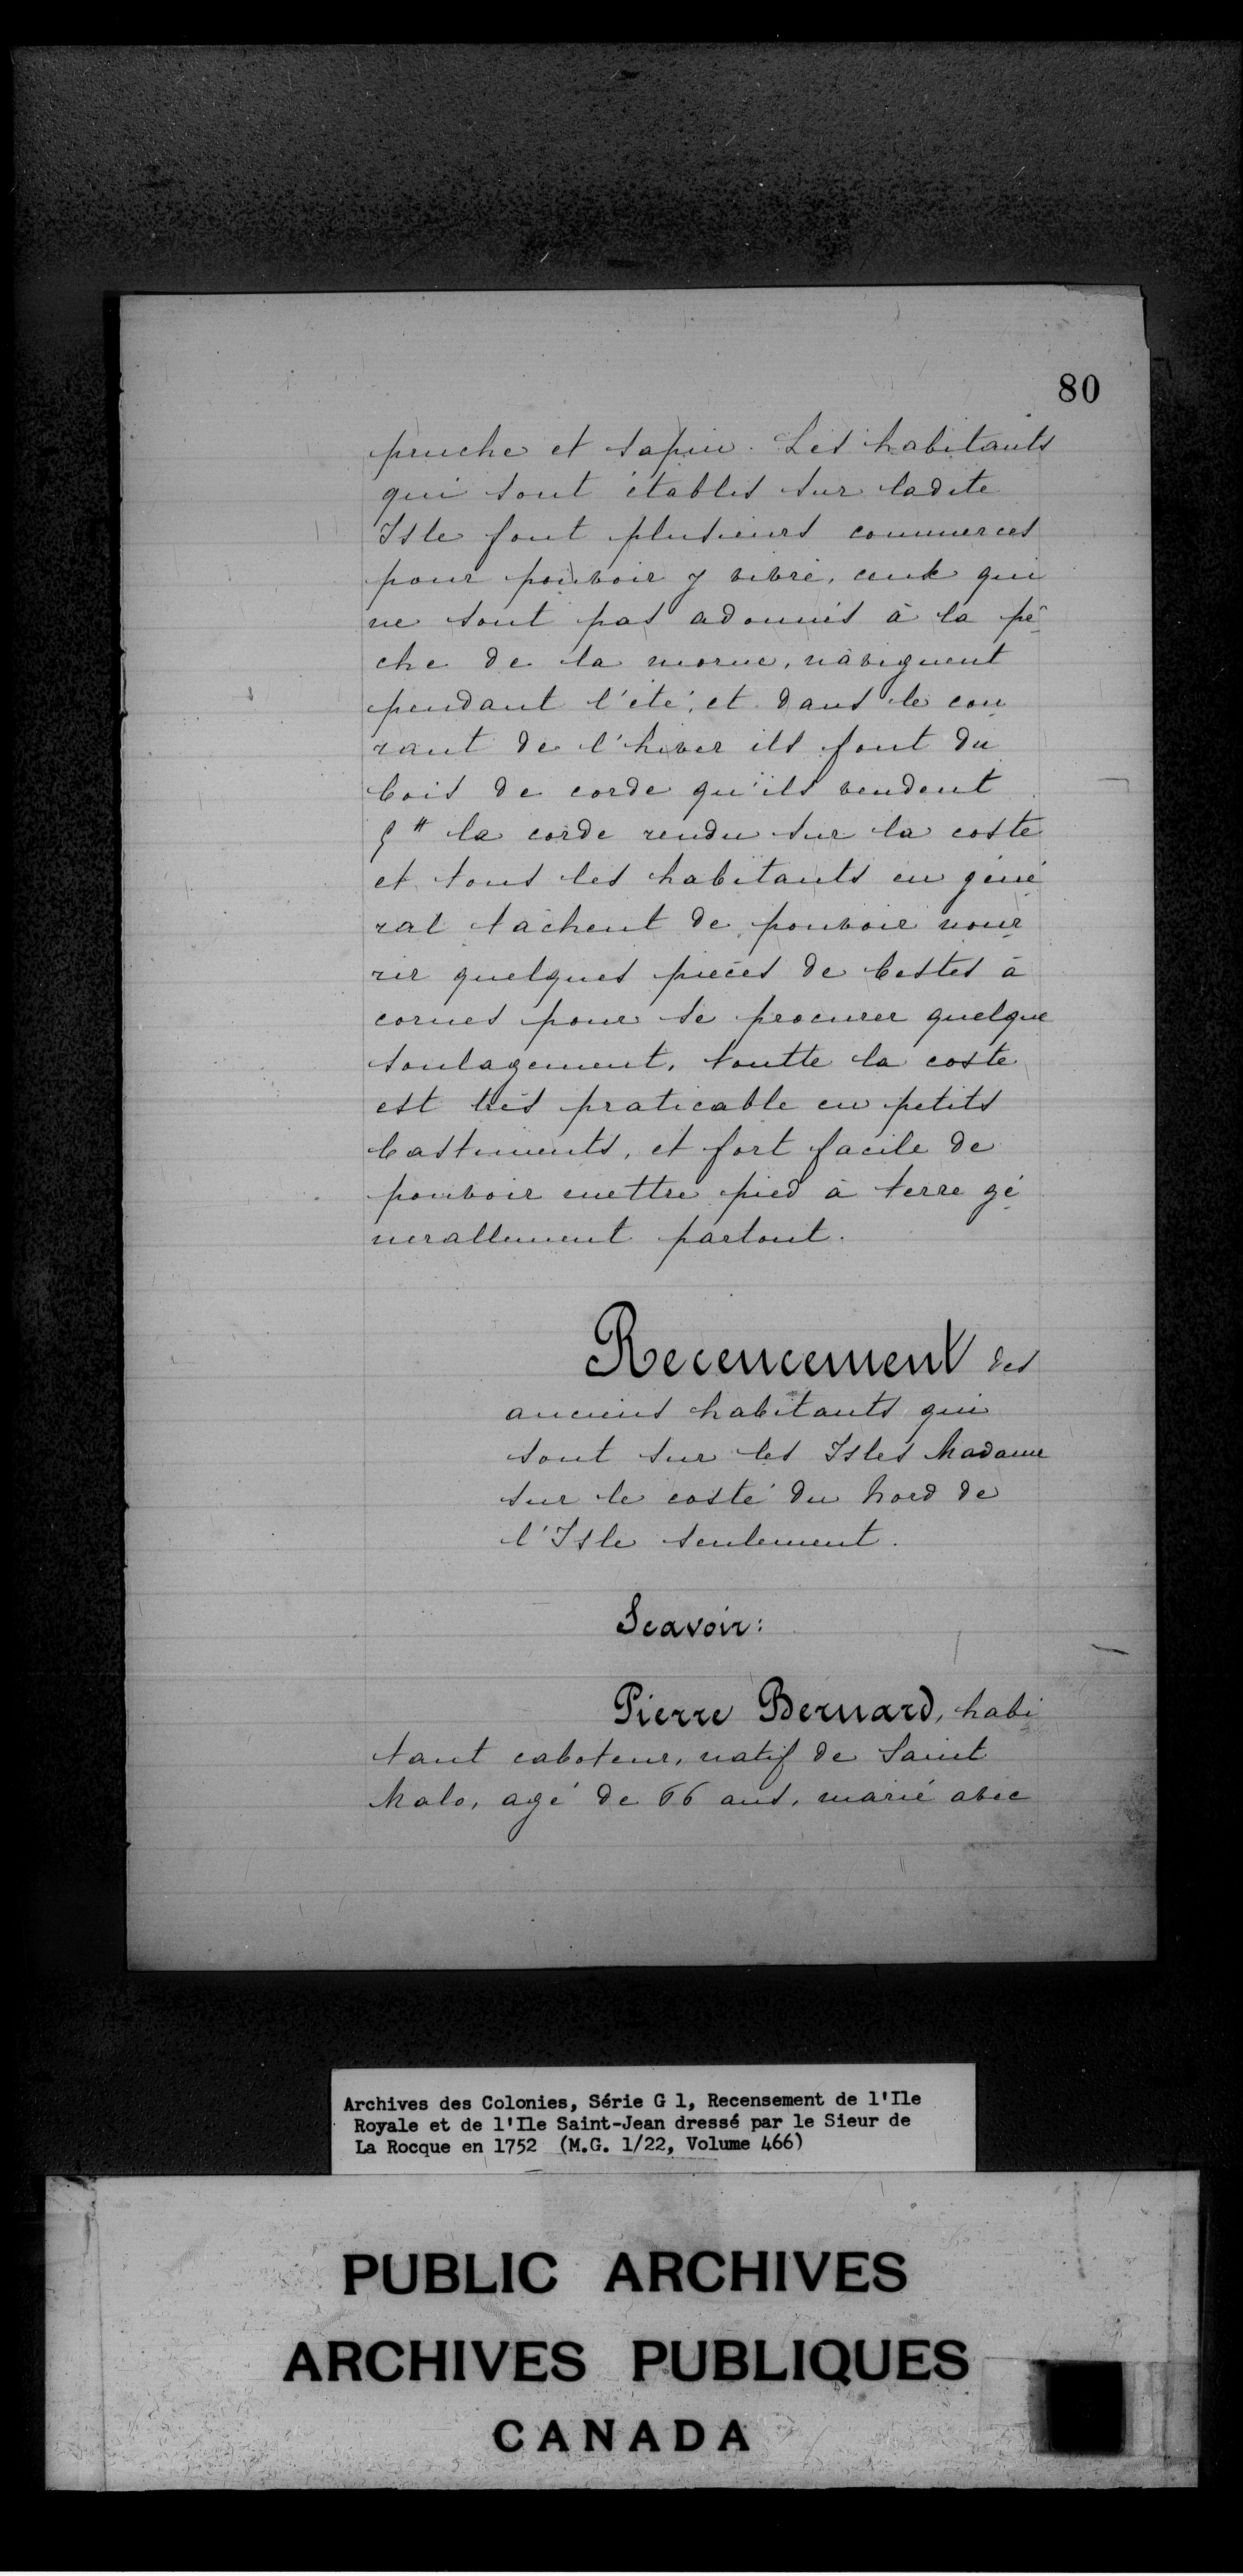 80
pruche et sapin. Les habitants
qui sont établis sur ladite
Isle font plusieurs commerces
pour pouvoir y vivre, ceux qui
ne sont pas adonnés à la pê-
che de la morue, naviguent
pendant l'été, et dans le cou
rant de l'hiver ils font du
bois de corde qu'ils vendent
la corde rendu sur la coste
et tous les habitants en géné
ral tachent de pouvoir nour
rir quelques pièces de bestes à
cornes pour se procurer quelque
soulagement, toutte la coste
est très praticable en petits
bastiments, et fort facile de
pouvoir mettre pied à terre gé
nerallement partout.
Recencement des
anciens habitants qui
sont sur les Isles Madame
sur le costé du Nord de
l'Isle seulement.
Scavoir:
Pierre Bernard, habi
tant caboteur, natif de Saint
Malo, agé de 66 ans, marié avec
Archives des Colonies, Série G 1, Recensement de l'Ile
Royale et de l'Ile Saint-Jean dressé par le Sieur de
La Rocque en 1752 (M.G. 1/22, Volume 466)
PUBLIC ARCHIVES
ARCHIVES PUBLIQUES
CANADA